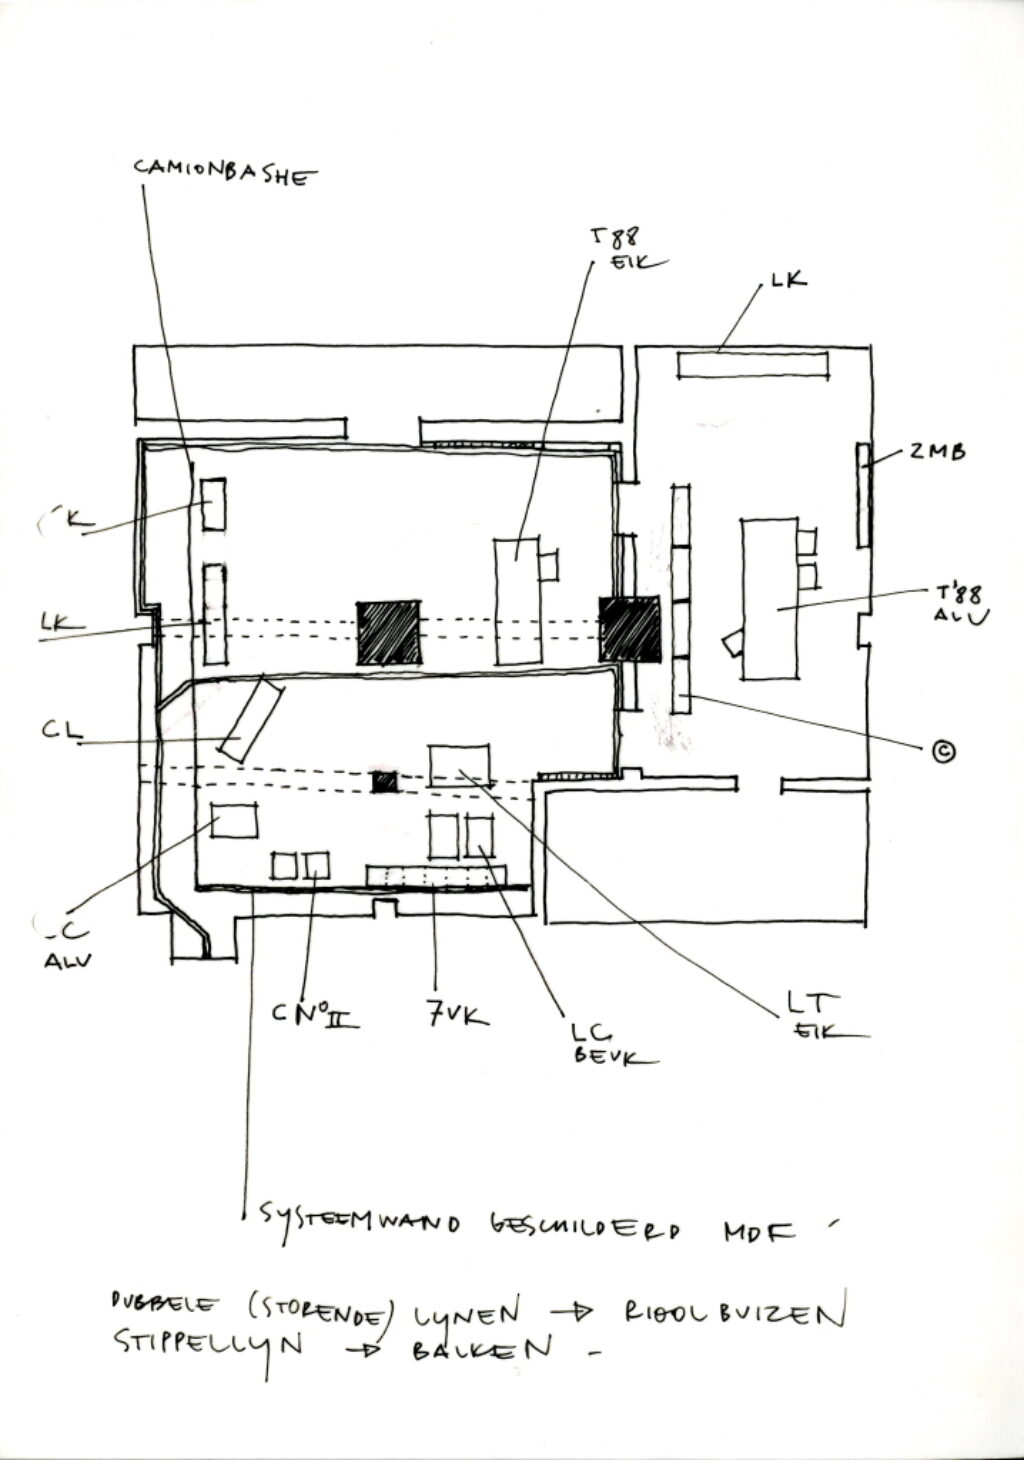 CAMIONBASHE
T88
EIK
LK
2MB
K
T'88
ALU
LK
CL
©
C
ALU
CN°II
7VK
LC
BEUK
LT
EIK
SYSTEEMWAND GESCHILDERD MDF
DUBBELE (STORENDE) LYNEN → RIOOLBUIZEN
STIPPELLYN → BALKEN -